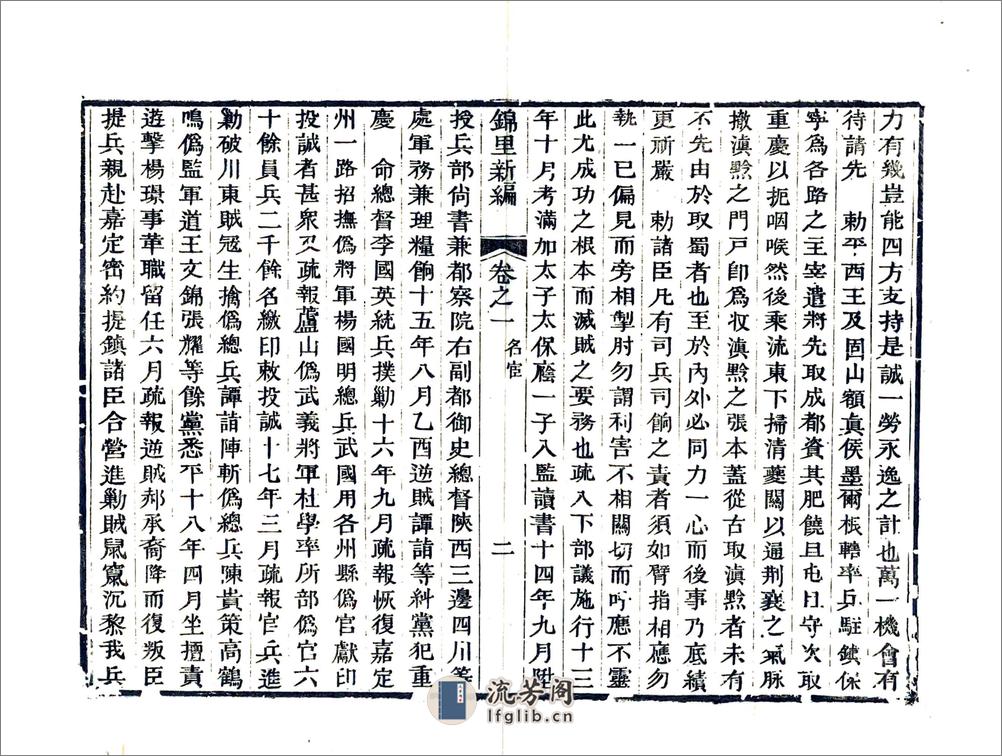 力有幾豈能四方支持是誠一勞永逸之計也萬一機會有
待請先　勅平西王及固山額真侯墨爾根轄率兵駐鎮保
寧爲各路之主宰遣將先取成都資其肥饒且屯且守次取
重慶以扼咽喉然後乘流東下掃清夔關以通荆襄之氣脉
撤滇黔之門戸卽爲收滇黔之張本蓋從古取滇黔者未有
不先由於取蜀者也至於內外必同力一心而後事乃底績
更祈嚴　勅諸臣凡有司兵司餉之責者須如臂指相應勿
執一已偏見而旁相掣肘勿謂利害不相關切而呼應不靈
此尤成功之根本而滅賊之要務也疏入下部議施行十三
年十月考滿加太子太保廕一子入監讀書十四年九月陞
錦里新編　卷之一　名宦　二
授兵部尚書兼都察院右副都御史總督陝西三邊四川等
處軍務兼理糧餉十五年八月乙酉逆賊譚詣等糾黨犯重
慶　命總督李國英統兵撲勦十六年九月疏報恢復嘉定
州一路招撫僞將軍楊國明總兵武國用各州縣僞官獻印
投誠者甚衆又疏報蘆山僞武義將軍杜學率所部僞官六
十餘員兵二千餘名繳印敕投誠十七年三月疏報官兵進
勦破川東賊冦生擒僞總兵譚詣陣斬僞總兵陳貴策高鶴
鳴僞監軍道王文錦張耀等餘黨悉平十八年四月坐擅責
遊擊楊璟事革職留任六月疏報逆賊郝承裔降而復叛臣
提兵親赴嘉定宻約提鎮諸臣合營進勦賊鼠竄沉黎我兵
流芳阁
lfglib.cn